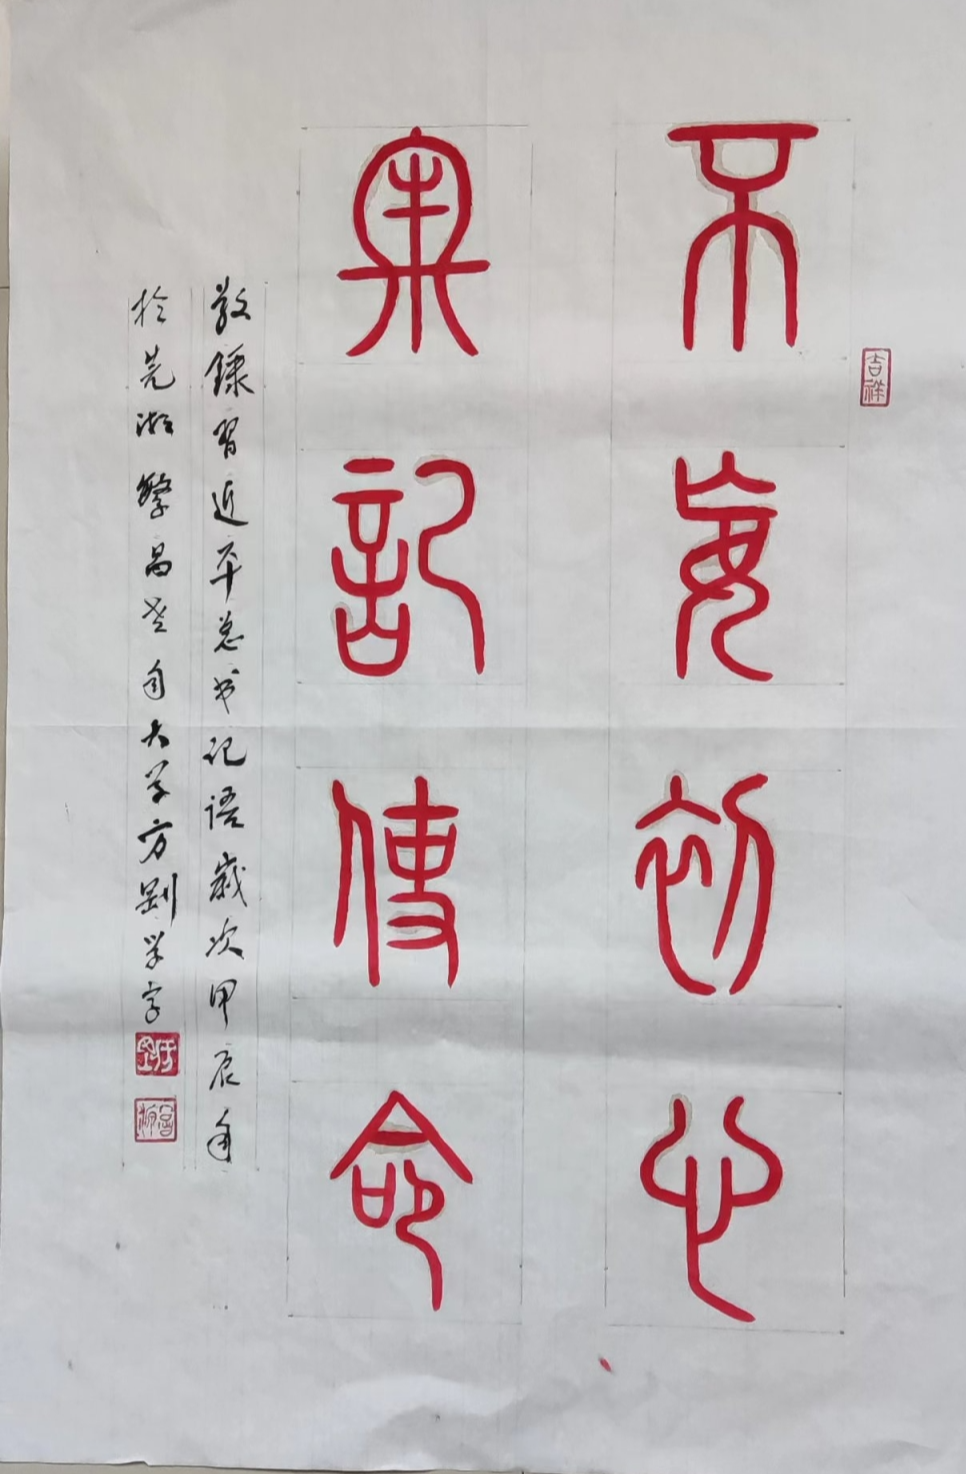 吉祥
不忘初心
牢記使命
敬錄習近平总书记语歲次甲辰年
於芜湖繁昌老年大学方剛学字